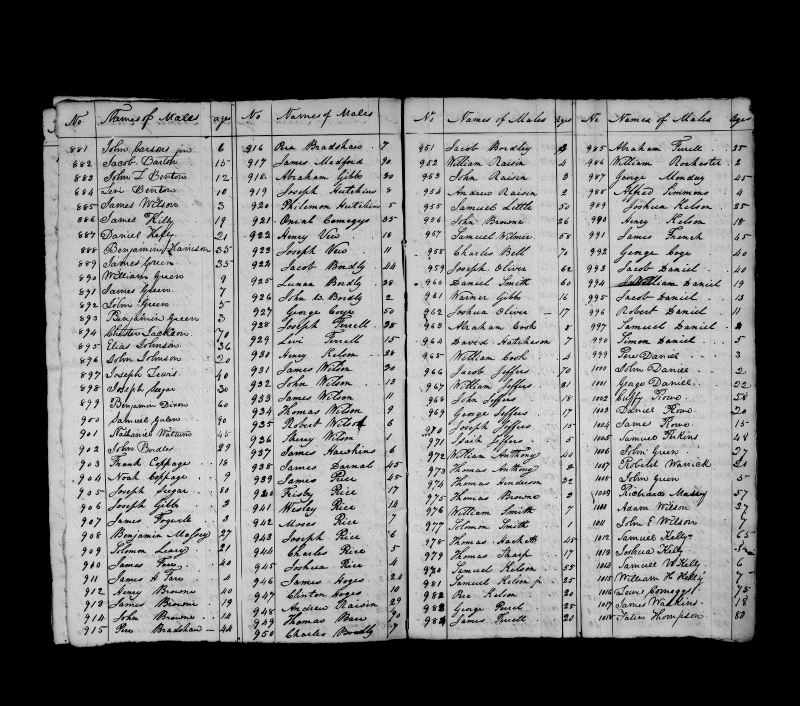 No Names of Males ages
881 John Carsons jn 6
882 Jacob Carter 15
883 John T Benton 12
884 Levi Benton 10
885 James Wilson 3
886 James Kelly 19
887 Daniel Kelly 21
888 Benjamin Harrison 35
889 James Green 35
890 William Green 9
891 James Green 7
892 John Green 5
893 Benjamin Green 3
894 Chester Jackson 70
895 Elias Johnson 36
896 John Johnson 20
897 Joseph Lewis 40
898 Joseph 30
899 Benjamin Dixon 60
900 Samuel 90
901 Nathaniel Watkins 45
902 John Bordley 29
903 Frank Coppage 18
904 Noah Coppage 9
905 Joseph Sugar 80
906 Joseph Gibbs 3
907 James Fogwell 3
908 Benjamin Massey 27
909 Solomon Leary 21
910 James 40
911 James H 4
912 Henry Browne 40
913 James Browne 19
914 John Browne 14
915 Pere Bradshaw 44
No Names of Males
916 Pere Bradshaw 7
917 James Medford 90
918 Abraham Gibbs 30
919 Joseph Hutchins 8
920 Philemon Hutchins 5
921 Oneal Comegys 35
922 Henry 18
923 Joseph 11
924 Jacob Bordly 44
925 Bordly 38
926 John W. Bordly 2
927 George Coye 50
928 Joseph Terrell 38
929 Levi Terrell 15
930 Henry Kelson 28
931 James Wilson 30
932 John Wilson 13
933 James Wilson 11
934 Thomas Wilson 9
935 Robert Wilson 6
936 Wilson 1
937 James Hawkins 6
938 James Darnal 45
939 James Rice 45
940 Frisby Rice 17
941 Wesley Rice 14
942 Moses Rice 7
943 Joseph Rice 6
944 Charles Rice 5
945 Joshua Rice 4
946 James Hoges 24
947 Clinton Hoges 10
948 Andrew Raisin 29
949 Thomas 90
950 Charles Bordly 7
No Names of Males Ages
951 Jacob Bordly
952 William Raisin 4
953 John Raisin 3
954 Andrew Raisin 2
955 Samuel Little 50
956 John Browne 26
957 Samuel Wilmer 58
958 Charles Bell 70
959 Joseph Oliver 62
960 Daniel Smith 60
961 Warner Gibbs 16
962 Joshua Oliver 17
963 Abraham Cook 8
964 David Hutcheson 7
965 William Cook 4
966 Jacob Jeffers 70
967 William Jeffers 21
968 John Jeffers 18
969 George Jeffers 17
970 Joseph Jeffers 15
971 Jeffers 5
972 William Anthony 40
973 Thomas Anthony 2
974 Thomas Henderson 22
975 Thomas Browne 3
976 William Smith 7
977 Solomon Smith 1
978 Thomas Hackett 45
979 Thomas Tharp 17
980 Samuel Kelson 55
981 Samuel Kelson jr 25
982 Pere Kelson 20
983 George 25
984 James 20
No Names of Males Ages
985 Abraham Terrell 25
986 William Rochester 2
987 George Monday 45
988 Alfred Simmons 4
989 Joshua Kelson 25
990 Henry Kelson 18
991 James French 45
992 George Coge 40
993 Jacob Daniel 40
994 William Daniel 19
995 Jacob Daniel 13
996 Robert Daniel 11
997 Samuel Daniel
998 Simon Daniel 5
999 Pere Daniel 3
1000 John Daniel 2
1001 George Daniel 22
1002 Cuffy Rowe 58
1003 Daniel Rowe 20
1004 James Rowe 15
1005 Samuel Perkins 48
1006 John Green 27
1007 Robert Warrick 21
1008 John Green 5
1009 Richard Massey 57
1010 Adam Wilson 27
1011 John E Wilson
1012 Samuel Kelly 65
1013 Joshua Kelly
1014 Samuel W Kelly 6
1015 William H Kelly 7
1016 Levi Comegys 75
1017 James Watkins 18
1018 Thompson 80